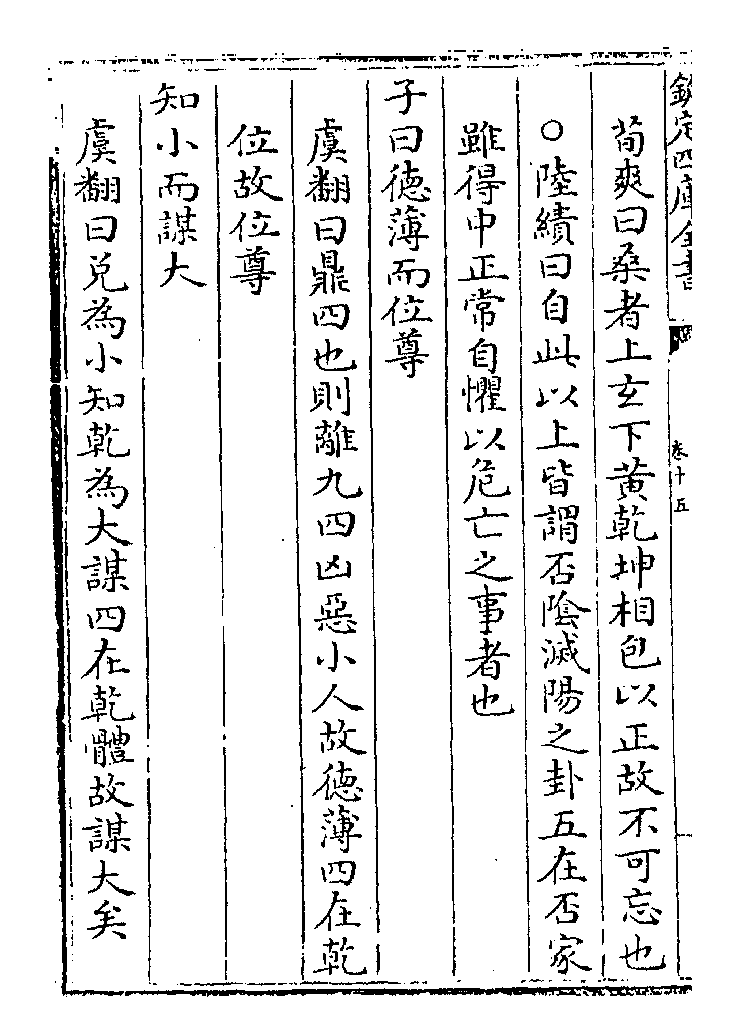 欽定四庫全書
卷十五
荀爽曰桑者上玄下黄乾坤相包以正故不可忘也
○陸績曰自此以上皆謂否隂滅陽之卦五在否家
雖得中正常自懼以危亡之事者也
子曰德薄而位尊
虞翻曰鼎四也則離九四凶惡小人故德薄四在乾
位故位尊
知小而謀大
虞翻曰兌為小知乾為大謀四在乾體故謀大矣